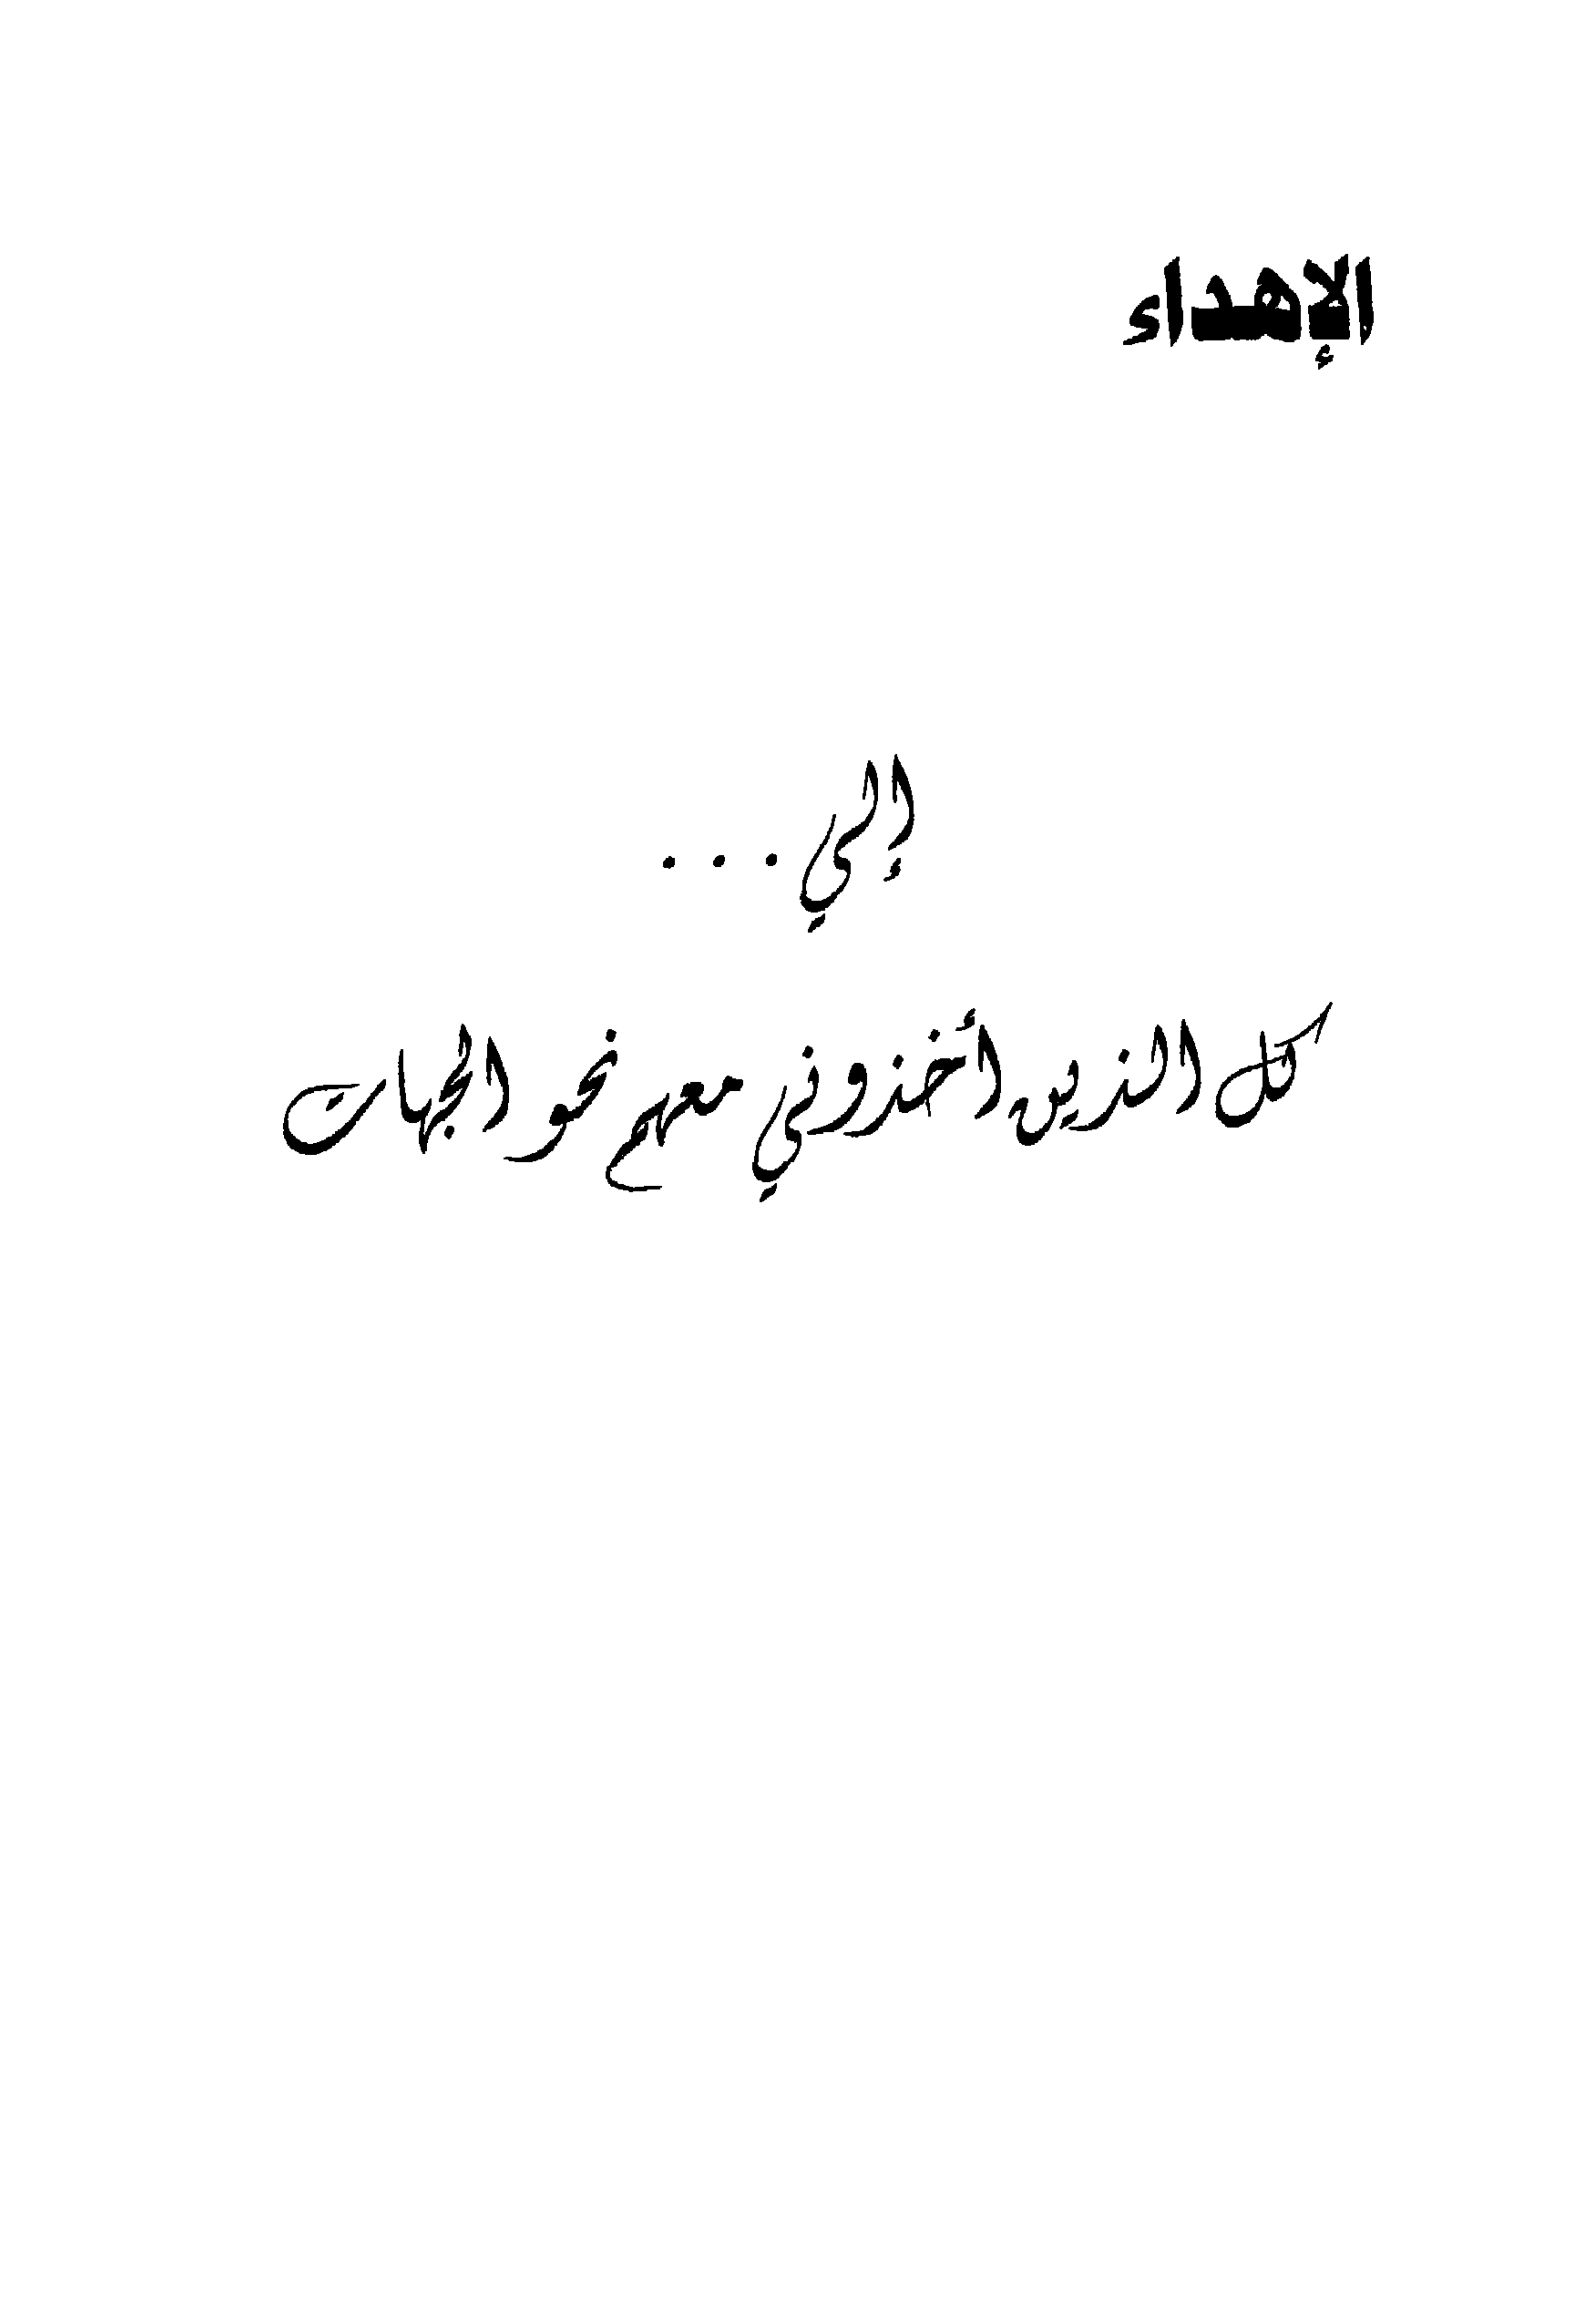 الإهداء
إلي . . .
كل الذين أخذوني معهم نحو الجهات